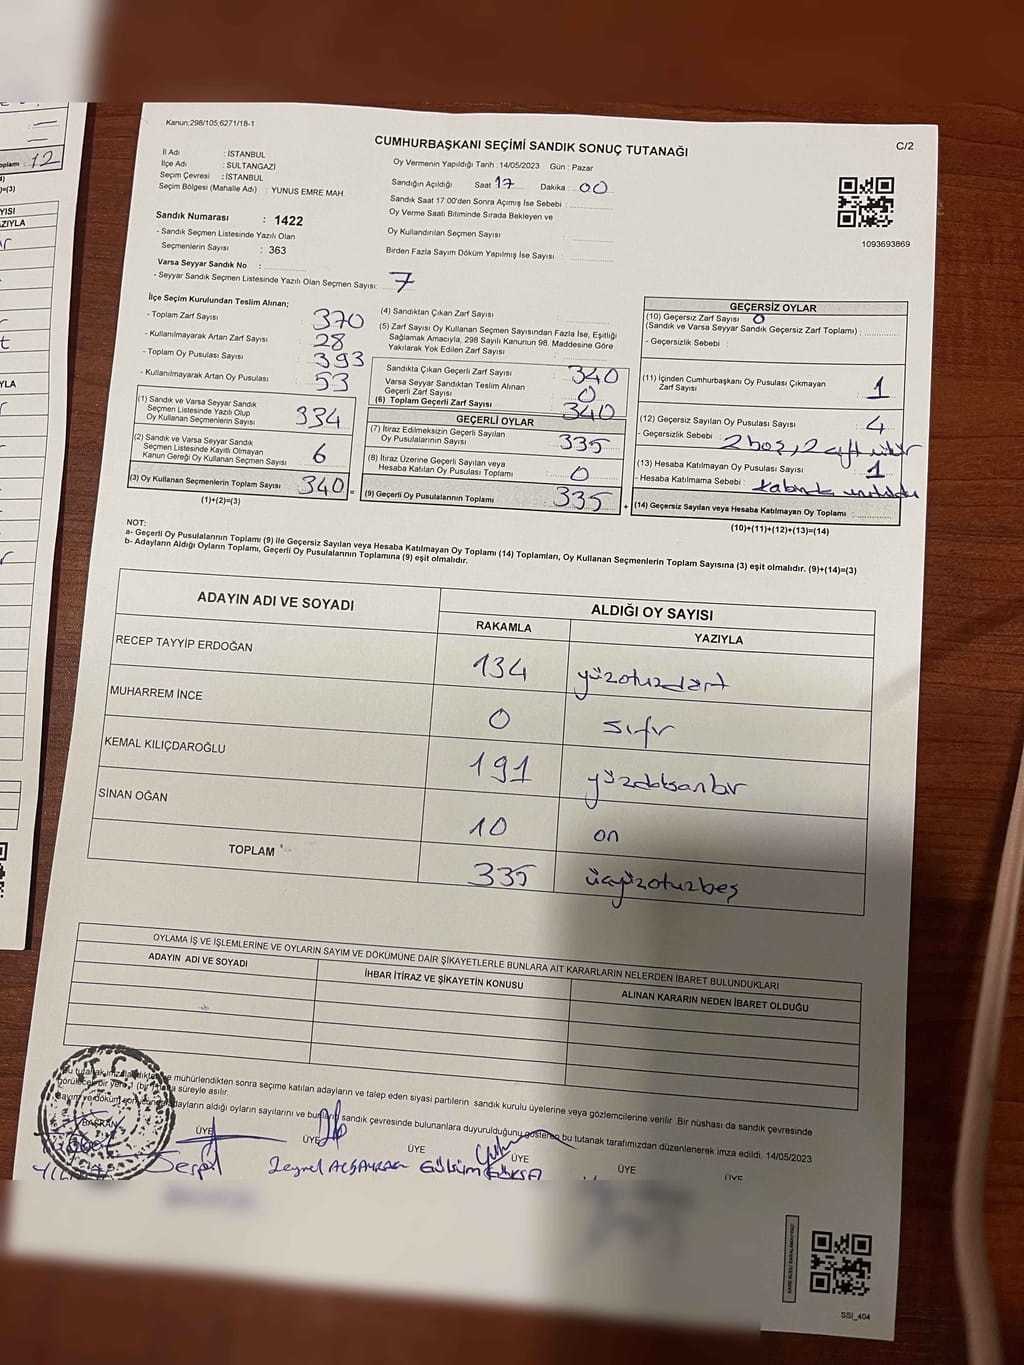 Kanun;298/105,6271/18-1
CUMHURBAŞKANI SEÇİMİ SANDIK SONUÇ TUTANAĞI
C/2
İl Adı : İSTANBUL
İlçe Adı : SULTANGAZİ
Seçim Çevresi : İSTANBUL
Seçim Bölgesi (Mahalle Adı) : YUNUS EMRE MAH.
Sandık Numarası : 1422
- Sandık Seçmen Listesinde Yazılı Olan
Seçmenlerin Sayısı : 363
Varsa Seyyar Sandık No :
- Seyyar Sandık Seçmen Listesinde Yazılı Olan Seçmen Sayısı: 7
Oy Vermenin Yapıldığı Tarih : 14/05/2023 Gün : Pazar
Sandığın Açıldığı Saat 17 Dakika : 00
Sandık Saat 17:00'den Sonra Açımış İse Sebebi :
Oy Verme Saati Bitiminde Sırada Bekleyen ve
Oy Kullandırılan Seçmen Sayısı :
Birden Fazla Sayım Döküm Yapılmış İse Sayısı :
1093693869
İlçe Seçim Kurulundan Teslim Alınan;
- Toplam Zarf Sayısı : 370
- Kullanılmayarak Artan Zarf Sayısı : 28
- Toplam Oy Pusulası Sayısı : 393
- Kullanılmayarak Artan Oy Pusulası : 53
(1) Sandık ve Varsa Seyyar Sandık
Seçmen Listesinde Yazılı Olup
Oy Kullanan Seçmenlerin Sayısı : 334
(2) Sandık ve Varsa Seyyar Sandık
Seçmen Listesinde Kayıtlı Olmayan
Kanun Gereği Oy Kullanan Seçmen Sayısı : 6
(3) Oy Kullanan Seçmenlerin Toplam Sayısı : 340
(1)+(2)=(3)
(4) Sandıktan Çıkan Zarf Sayısı :
(5) Zarf Sayısı Oy Kullanan Seçmen Sayısından Fazla İse, Eşitliği
Sağlamak Amacıyla; 298 Sayılı Kanunun 98. Maddesine Göre
Yakılarak Yok Edilen Zarf Sayısı :
Sandıkta Çıkan Geçerli Zarf Sayısı : 340
Varsa Seyyar Sandıktan Teslim Alınan
Geçerli Zarf Sayısı : 0
(6) Toplam Geçerli Zarf Sayısı : 340
GEÇERLİ OYLAR
(7) İtiraz Edilmeksizin Geçerli Sayılan
Oy Pusulalarının Sayısı : 335
(8) İtiraz Üzerine Geçerli Sayılan veya
Hesaba Katılan Oy Pusulası Toplamı : 0
(9) Geçerli Oy Pusulalarının Toplamı : 335
GEÇERSİZ OYLAR
(10) Geçersiz Zarf Sayısı : 0
(Sandık ve Varsa Seyyar Sandık Geçersiz Zarf Toplamı) :
- Geçersizlik Sebebi :
(11) İçinden Cumhurbaşkanı Oy Pusulası Çıkmayan
Zarf Sayısı : 1
(12) Geçersiz Sayılan Oy Pusulası Sayısı : 4
- Geçersizlik Sebebi : 2 boş, 2 çift
(13) Hesaba Katılmayan Oy Pusulası Sayısı : 1
- Hesaba Katılmama Sebebi : kabinde unutuldu
(14) Geçersiz Sayılan veya Hesaba Katılmayan Oy Toplamı :
(10)+(11)+(12)+(13)=(14)
NOT:
a- Geçerli Oy Pusulalarının Toplamı (9) ile Geçersiz Sayılan veya Hesaba Katılmayan Oy Toplamı (14) Toplamları, Oy Kullanan Seçmenlerin Toplam Sayısına (3) eşit olmalıdır. (9)+(14)=(3)
b- Adayların Aldığı Oyların Toplamı, Geçerli Oy Pusulalarının Toplamına (9) eşit olmalıdır.
ADAYIN ADI VE SOYADI
ALDIĞI OY SAYISI
RAKAMLA YAZIYLA
RECEP TAYYİP ERDOĞAN 134 yüzotuzdört
MUHARREM İNCE 0 sıfır
KEMAL KILIÇDAROĞLU 191 yüzdoksanbir
SİNAN OĞAN 10 on
TOPLAM 335 üçyüzotuzbeş
OYLAMA İŞ VE İŞLEMLERİNE VE OYLARIN SAYIM VE DÖKÜMÜNE DAİR ŞİKAYETLERLE BUNLARA AİT KARARLARIN NELERDEN İBARET BULUNDUKLARI
ADAYIN ADI VE SOYADI İHBAR İTİRAZ VE ŞİKAYETİN KONUSU ALINAN KARARIN NEDEN İBARET OLDUĞU
mühürlendikten sonra seçime katılan adayların ve talep eden siyasi partilerin sandık kurulu üyelerine veya gözlemcilerine verilir. Bir nüshası da sandık çevresinde
süreyle asılır.
adayların aldığı oyların sayılarını ve sandık çevresinde bulunanlara duyurulduğunu gösteren bu tutanak tarafımızdan düzenlenerek imza edildi. 14/05/2023
BAŞKAN ÜYE ÜYE ÜYE ÜYE ÜYE ÜYE
Serpil Zeynel Gülsüm
SSİ_404